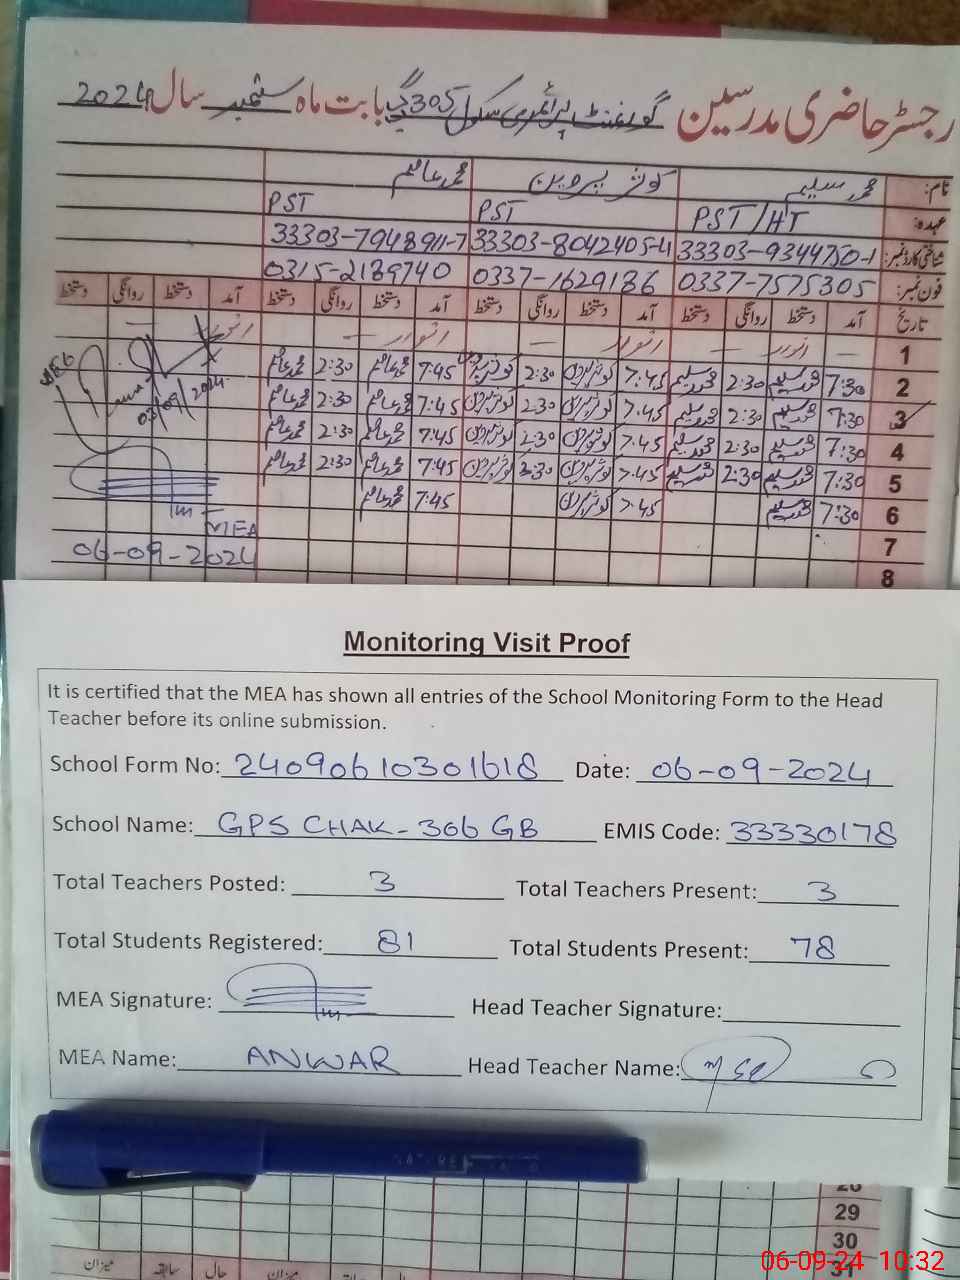 رجسٹر حاضری مدرسین گورنمنٹ پرائمری سکول 305 گ ب بابت ماہ ستمبر سال 2024
نام: محمد سلیم کوثر پروین محمد عاصم
عہدہ: PST/HT PST PST
شناختی کارڈ نمبر: 33303-9344750-1 33303-8042405-4 33303-7948911-7
فون نمبر: 0337-7575305 0337-1629186 0315-2189740
تاریخ آمد دستخط روانگی دستخط آمد دستخط روانگی دستخط آمد دستخط روانگی دستخط آمد دستخط روانگی دستخط
1 — اتوار — اتوار — اتوار —
2 7:30 محمد سلیم 2:30 محمد سلیم 7:45 کوثر پروین 2:30 کوثر پروین 7:45 محمد عاصم 2:30 محمد عاصم
3 7:30 محمد سلیم 2:30 محمد سلیم 7:45 کوثر پروین 2:30 کوثر پروین 7:45 محمد عاصم 2:30 محمد عاصم
03/09/2024
4 7:30 محمد سلیم 2:30 محمد سلیم 7:45 کوثر پروین 2:30 کوثر پروین 7:45 محمد عاصم 2:30 محمد عاصم
5 7:30 محمد سلیم 2:30 محمد سلیم 7:45 کوثر پروین 2:30 کوثر پروین 7:45 محمد عاصم 2:30 محمد عاصم
6 7:30 محمد سلیم 7:45 کوثر پروین 7:45 محمد عاصم
MEA
7
06-09-2024
8
Monitoring Visit Proof
It is certified that the MEA has shown all entries of the School Monitoring Form to the Head
Teacher before its online submission.
School Form No: 24090610301618 Date: 06-09-2024
School Name: GPS CHAK-306 GB EMIS Code: 33330178
Total Teachers Posted: 3 Total Teachers Present: 3
Total Students Registered: 81 Total Students Present: 78
MEA Signature: Head Teacher Signature:
MEA Name: ANWAR Head Teacher Name:
28
29
30
31
میزان سابقہ حال میزان
06-09-24 10:32